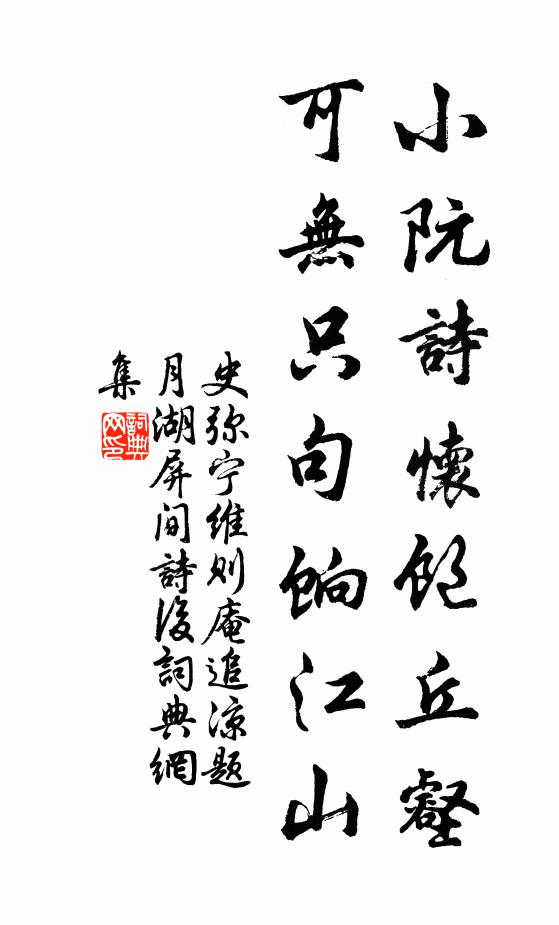 小阮詩懷飽丘壑
可無只句餉江山
史弥宁維则庵追涼题
月湖屏间詩後詞典網
集
詞典
网印